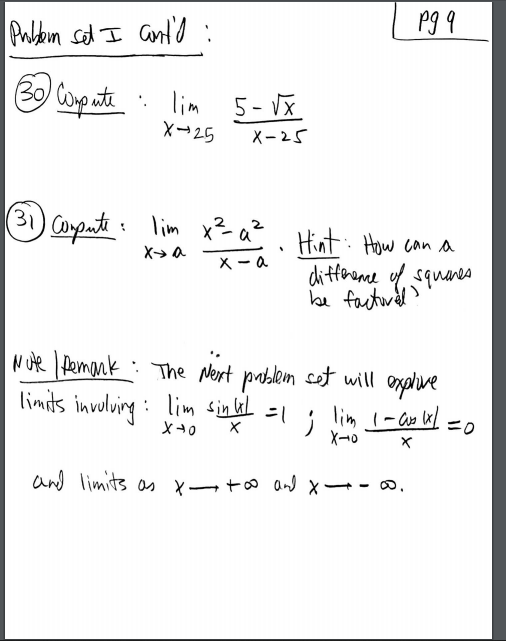 Problem set I Cont'd :
pg 9
(30) Compute : lim x→25 (5 - √x)/(x - 25)
(31) Compute : lim x→a (x² - a²)/(x - a) . Hint : How can a
difference of squares
be factored?
Note / Remark : The Next problem set will explore
limits involving : lim x→0 sin(x)/x = 1 ; lim x→0 (1 - cos(x))/x = 0
and limits as x → +∞ and x → -∞.